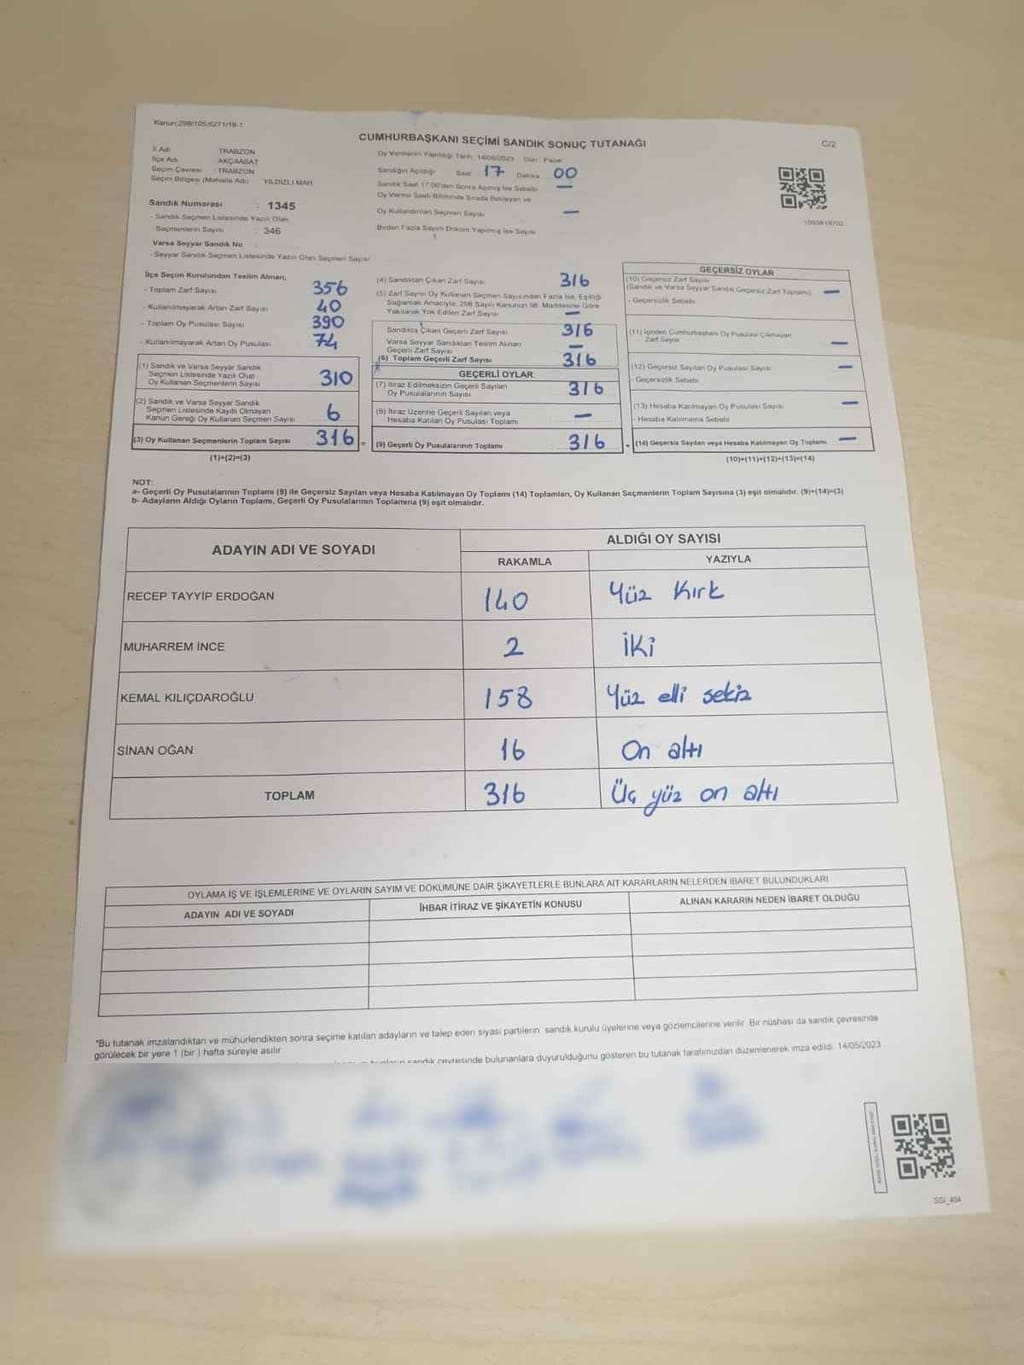 Kanun:298/105,6271/18-1
CUMHURBAŞKANI SEÇİMİ SANDIK SONUÇ TUTANAĞI
C/2
İl Adı TRABZON
İlçe Adı AKÇAABAT
Seçim Çevresi : TRABZON
Seçim Bölgesi (Mahalle Adı) YILDIZLI MAH.
Sandık Numarası : 1345
- Sandık Seçmen Listesinde Yazılı Olan
Seçmenlerin Sayısı : 346
Varsa Seyyar Sandık No
- Seyyar Sandık Seçmen Listesinde Yazılı Olan Seçmen Sayısı
Oy Vermenin Yapıldığı Tarih: 14/05/2023 Gün: Pazar
Sandığın Açıldığı Saat 17 Dakika 00
Sandık Saat 17.00'den Sonra Açılmış İse Sebebi —
Oy Verme Saati Bitiminde Sırada Bekleyen ve
Oy Kullandırılan Seçmen Sayısı —
Birden Fazla Sayım Döküm Yapılmış İse Sayısı
İlçe Seçim Kurulundan Teslim Alınan;
- Toplam Zarf Sayısı 356
- Kullanılmayarak Artan Zarf Sayısı 40
- Toplam Oy Pusulası Sayısı 390
- Kullanılmayarak Artan Oy Pusulası 74
(1) Sandık ve Varsa Seyyar Sandık
Seçmen Listesinde Yazılı Olup
Oy Kullanan Seçmenlerin Sayısı 310
(2) Sandık ve Varsa Seyyar Sandık
Seçmen Listesinde Kayıtlı Olmayan
Kanun Gereği Oy Kullanan Seçmen Sayısı 6
(3) Oy Kullanan Seçmenlerin Toplam Sayısı 316 =
(1)+(2)=(3)
(4) Sandıktan Çıkan Zarf Sayısı 316
(5) Zarf Sayısı Oy Kullanan Seçmen Sayısından Fazla İse, Eşitliği
Sağlamak Amacıyla, 298 Sayılı Kanunun 98. Maddesine Göre
Yakılarak Yok Edilen Zarf Sayısı —
Sandıkta Çıkan Geçerli Zarf Sayısı 316
Varsa Seyyar Sandıktan Teslim Alınan
Geçerli Zarf Sayısı —
(6) Toplam Geçerli Zarf Sayısı 316
GEÇERLİ OYLAR
(7) İtiraz Edilmeksizin Geçerli Sayılan
Oy Pusulalarının Sayısı 316
(8) İtiraz Üzerine Geçerli Sayılan veya
Hesaba Katılan Oy Pusulası Toplamı —
(9) Geçerli Oy Pusulalarının Toplamı 316 +
GEÇERSİZ OYLAR
(10) Geçersiz Zarf Sayısı
(Sandık ve Varsa Seyyar Sandık Geçersiz Zarf Toplamı) —
- Geçersizlik Sebebi
(11) İçinden Cumhurbaşkanı Oy Pusulası Çıkmayan
Zarf Sayısı —
(12) Geçersiz Sayılan Oy Pusulası Sayısı —
- Geçersizlik Sebebi
(13) Hesaba Katılmayan Oy Pusulası Sayısı —
- Hesaba Katılmama Sebebi
(14) Geçersiz Sayılan veya Hesaba Katılmayan Oy Toplamı —
(10)+(11)+(12)+(13)=(14)
NOT:
a- Geçerli Oy Pusulalarının Toplamı (9) ile Geçersiz Sayılan veya Hesaba Katılmayan Oy Toplamı (14) Toplamları, Oy Kullanan Seçmenlerin Toplam Sayısına (3) eşit olmalıdır. (9)+(14)=(3)
b- Adayların Aldığı Oyların Toplamı, Geçerli Oy Pusulalarının Toplamına (9) eşit olmalıdır.
ADAYIN ADI VE SOYADI ALDIĞI OY SAYISI
RAKAMLA YAZIYLA
RECEP TAYYİP ERDOĞAN 140 Yüz Kırk
MUHARREM İNCE 2 İki
KEMAL KILIÇDAROĞLU 158 Yüz elli sekiz
SİNAN OĞAN 16 On altı
TOPLAM 316 Üç yüz on altı
OYLAMA İŞ VE İŞLEMLERİNE VE OYLARIN SAYIM VE DÖKÜMÜNE DAİR ŞİKAYETLERLE BUNLARA AİT KARARLARIN NELERDEN İBARET BULUNDUKLARI
ADAYIN ADI VE SOYADI İHBAR İTİRAZ VE ŞİKAYETİN KONUSU ALINAN KARARIN NEDEN İBARET OLDUĞU
*Bu tutanak imzalandıktan ve mühürlendikten sonra seçime katılan adayların ve talep eden siyasi partilerin sandık kurulu üyelerine veya gözlemcilerine verilir. Bir nüshası da sandık çevresinde
görülecek bir yere 1 (bir ) hafta süreyle asılır
sandık çevresinde bulunanlara duyurulduğunu gösteren bu tutanak tarafımızdan düzenlenerek imza edildi. 14/05/2023
SSI_404